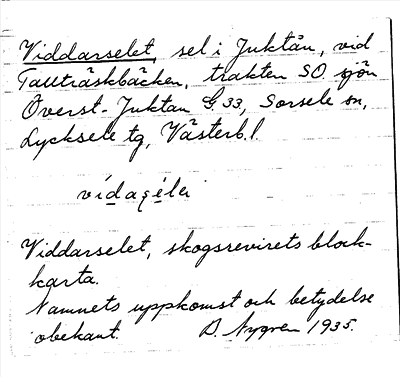 Viddarselet, sel i Juktån, vid
Tallträskbäcken, trakten SO. sjön
Överst-Juktan G. 33, Sorsele sn,
Lycksele tg, Västerb. l.
Viddarselet, skogsrevirets block-
karta.
Namnets uppkomst och betydelse
obekant. D. Nygren 1935.